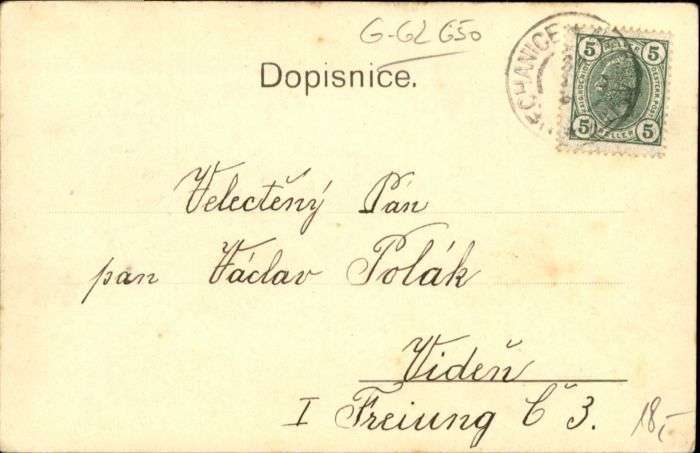 G-62 650
Dopisnice.
NECHANICE
5 HELLER 5
5 HELLER 5
Velectěný Pán
pan Václav Polák
Videň
I Freiung Č 3.
18,-